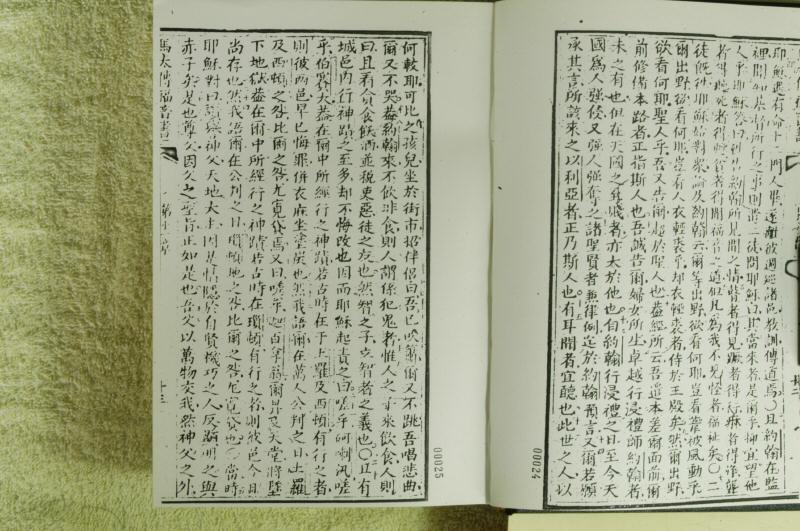 耶穌
門人畢遂離彼過巡諸邑教訓傳道焉○且約翰在監
裡聞知基督所行之事則
二徒問耶穌曰其當來者是爾乎抑宜望他
人乎耶穌答曰
約翰所見聞之情瞽者得見跛者得
者得聽死者得
者得聞福音之道但凡為我不見怪者福祉矣○二
徒既往耶穌始對眾論及約翰云爾等出野欲看何耶豈看葦被風動乎
爾出野欲看何耶豈有人衣輕裘乎却衣輕裘者侍於王殿矣然爾出野
欲看何耶聖人乎吾又告爾超於聖人也蓋經所云吾遣本差爾面前爾
前修備本路者正指斯人也吾誠告爾婦女所生卓越行浸禮師約翰者
未之有也但在天國之
賤者亦大於他也自約翰行浸禮之日至今天
國為人強侵又強人強奪之諸聖賢者兼律例迄於約翰預言又爾若願
承其言所該來之以利亞者正乃斯人也有耳聞者宜聽也此世之人以
00024
何較耶可比之孩兒坐於街市招伴侶曰吾已吹簫爾又不跳吾唱悲曲
爾又不哭蓋約翰來不飲非食則人謂係犯鬼者惟人之子來飲食人則
曰且看貪食飲酒並稅吏惡徒之友也然智之子立智者之義也○且有
城邑內行神蹟之至多却不悔改也因而耶穌起責之曰嗟乎
汛嗟
乎伯賽大蓋在爾中所經行之神蹟若古時在于土羅及西頓有行之者
則彼兩邑早已悔罪併衣麻坐塗炭也然我語爾在萬人公判之日土羅
及西頓之咎比爾之咎尤寬貸焉又曰嗟乎迦百拿翁爾昇及天堂將墜
下地獄蓋在爾中所經行之神蹟若古時在瑣頓有行之者則彼邑今日
尚存也然我語爾在公判之日瑣頓地之咎比爾之咎尤寬貸也○當時
耶穌對曰
神父天地大主因是情隱於自賢機巧之人反顯明之與
赤子矣是也尊父因父之聖旨正如是也吾父以萬物交我然神父之外
馬太傳福音書
第十一章
十三
00025